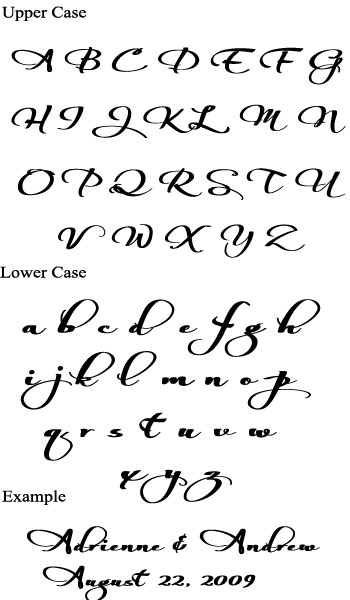 Upper Case
A B C D E F G
H I J K L M N
O P Q R S T U
V W X Y Z
Lower Case
a b c d e f g h
i j k l m n o p
q r s t u v w
x y z
Example
Adrienne & Andrew
August 22, 2009